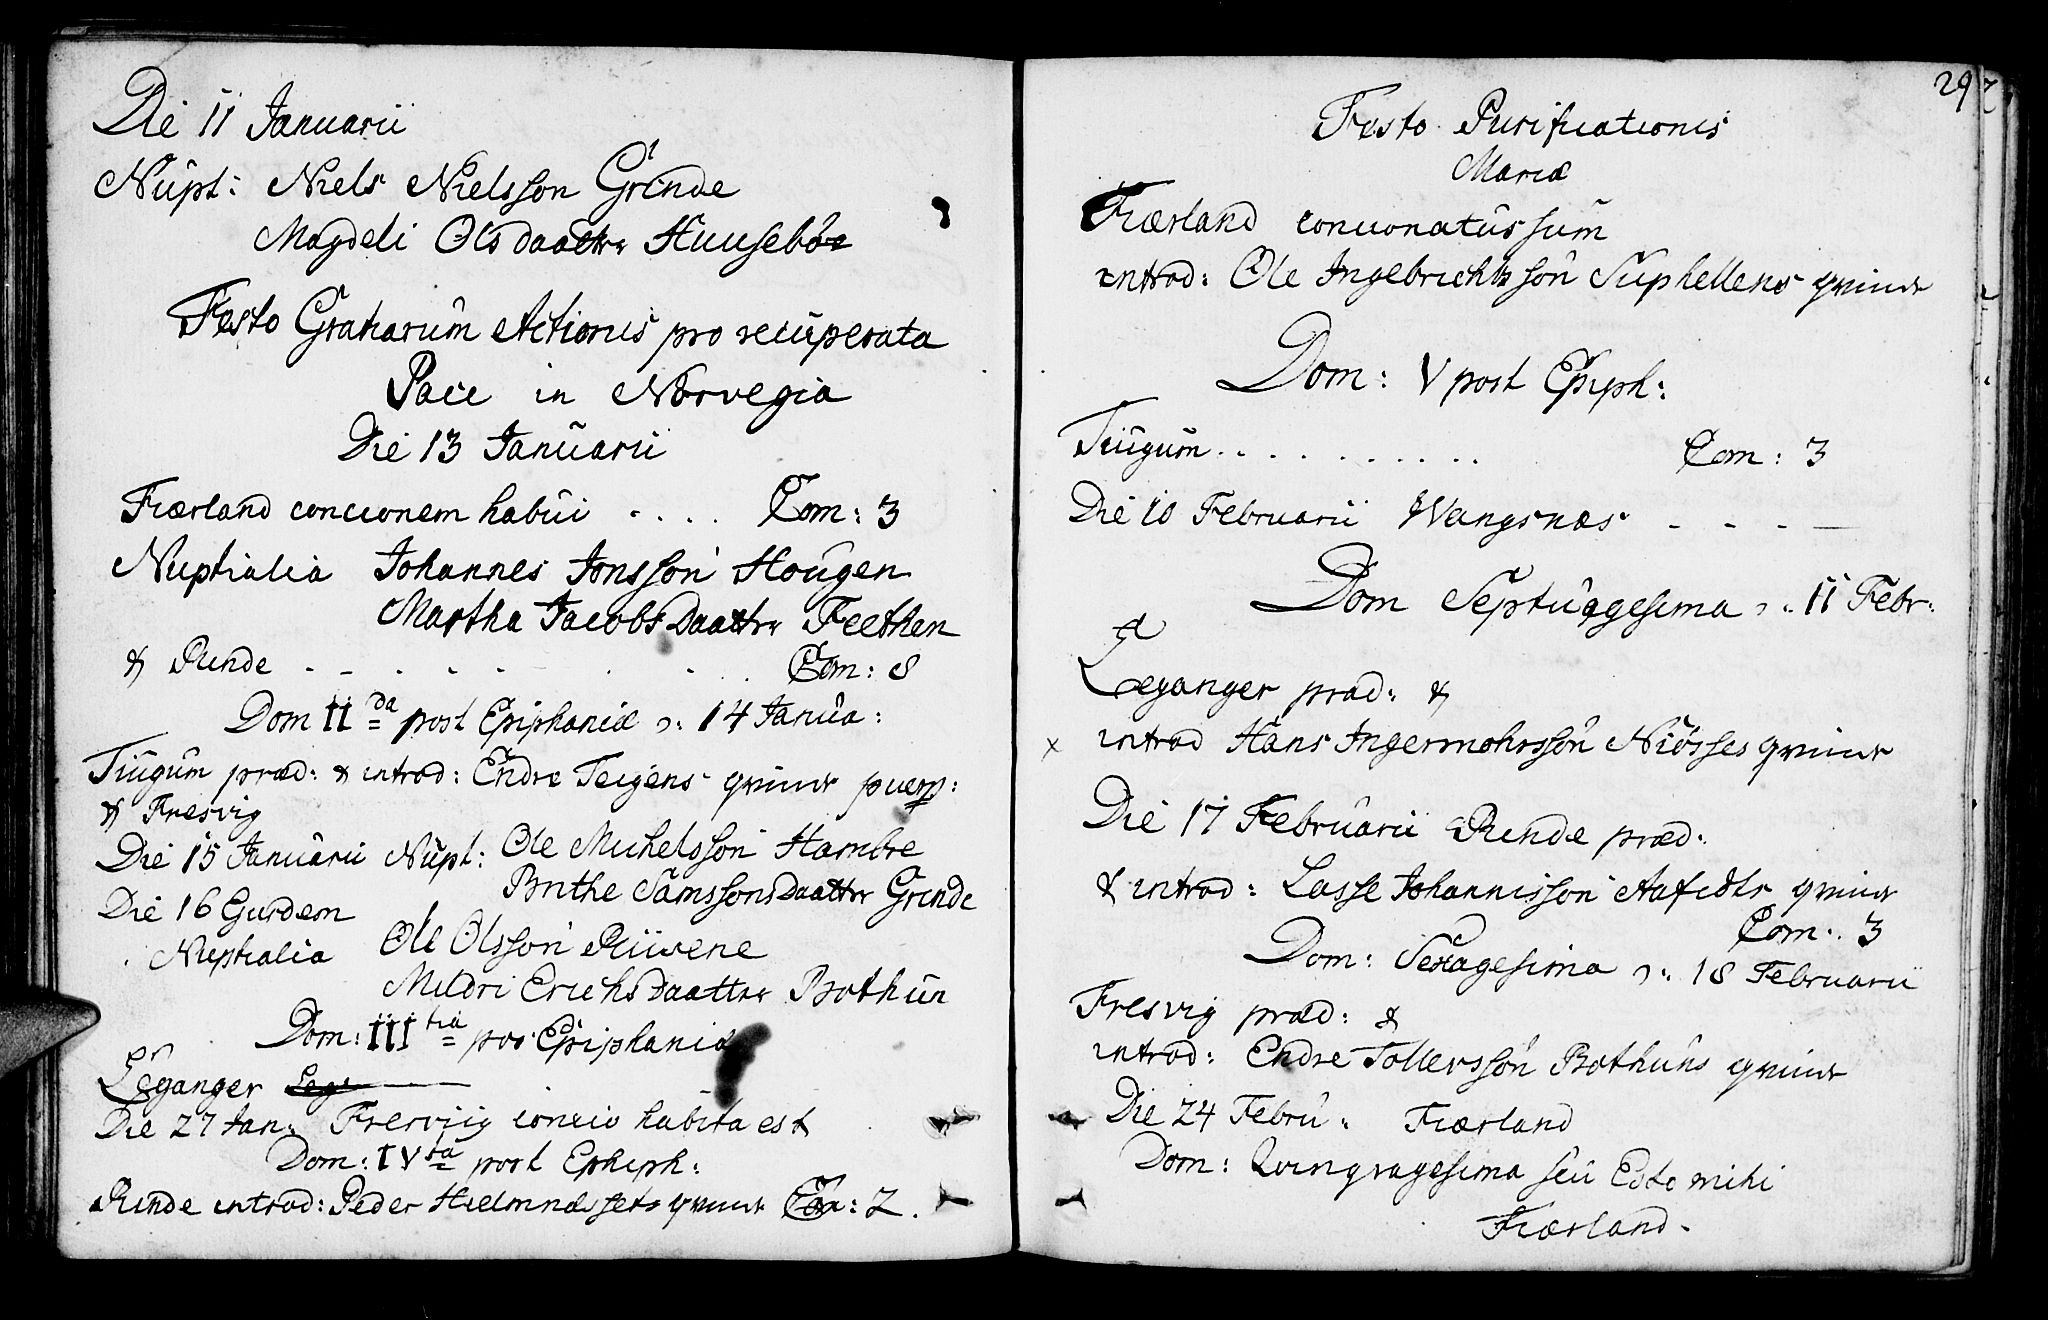 Die 11 Januarii
Nupt: Niels Nielsson Grinde
Magdeli Olsdaatter Huusebøe
Festo Gratiarum Actionis pro recuperata
Pace in Norvegia
Die 13 Januarii
Fiærland concionem habui . . . . Com: 3
Nuptialia Johannes Jonsson Hougen
Martha Jacobsdaatter Feethen
& Rinde - - - - - . - . Com: 8
Dom II da post Epiphaniæ ɔ: 14 Janua:
Tiugum præd: & introd: Endre Teigens qvinde puerp:
& Fresvig
Die 15 Januarii Nupt: Ole Michelsson Hambre
Brithe Samssonsdaatter Grinde
Die 16 Gurdem
Nuptialia Ole Olsson
Mildri Erichsdaatter Bothun
Dom: III tia post Epiphaniæ
Leganger Leg
Die 27 Jan: Fresviig concio habita est
Dom: IV ta post Ephiph:
Rinde introd: Peder Hielmnæssets qvinde Com: 2.
29
Festo Purificationis
Mariæ
Fiærland concionatus sum
introd: Ole Ingebrichtsson Suphellens qvinde
Dom: V post Epiph:
Tiugum . . . . . . . . . . Com: 3
Die 10 Februarii Wangsnæs - - - -
Dom Septuagesima ɔ: 11 Febr:
Leganger præd: &
x introd Hans Ingermohrssøn Niøsses qvinde
Die 17 Februarii Rinde præd:
& introd: Lasse Johannisson qvinde
Com: 3
Dom: Sexagesima ɔ: 18 Februarii
Fresvig præd: &
introd: Endre Tollerssøn Bothuns qvinde
Die 24 Febru: Fiærland
Dom: Qvinqvagesima seu Esto mihi
Fiærland.